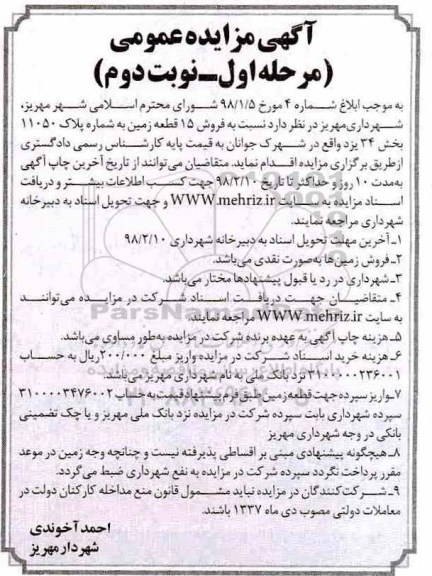 آگهی مزایده عمومی
(مرحله اول_نوبت دوم)
به موجب ابلاغ شماره ۴ مورخ ۹۸/۱/۵ شورای محترم اسلامی شهر مهریز،
شهرداری مهریز در نظر دارد نسبت به فروش ۱۵ قطعه زمین به شماره پلاک ۱۱۰۵۰
بخش ۳۴ یزد واقع در شهرک جوانان به قیمت پایه کارشناس رسمی دادگستری
از طریق برگزاری مزایده اقدام نماید. متقاضیان می‌توانند از تاریخ آخرین چاپ آگهی
به‌مدت ۱۰ روز و حداکثر تا تاریخ ۹۸/۲/۱۰ جهت کسب اطلاعات بیشتر و دریافت
اسناد مزایده به سایت WWW.mehriz.ir و جهت تحویل اسناد به دبیرخانه
شهرداری مراجعه نمایند.
۱ـ آخرین مهلت تحویل اسناد به دبیرخانه شهرداری ۹۸/۲/۱۰
۲ـ فروش زمین‌ها به‌صورت نقدی می‌باشد.
۳ـ شهرداری در رد یا قبول پیشنهادها مختار می‌باشد.
۴ـ متقاضیان جهت دریافت اسناد شرکت در مزایده می‌توانند
به سایت WWW.mehriz.ir مراجعه نمایند.
۵ـ هزینه چاپ آگهی به عهده برنده شرکت در مزایده به‌طور مساوی می‌باشد.
۶ـ هزینه خرید اسناد شرکت در مزایده واریز مبلغ ۲۰۰/۰۰۰ ریال به حساب
۳۱۰۰۰۰۰۲۳۶۰۰۱ نزد بانک ملی به نام شهرداری مهریز می‌باشد.
۷ـ واریز سپرده جهت قطعه زمین طبق فرم پیشنهاد قیمت به حساب ۳۱۰۰۰۰۳۴۷۶۰۰۲
سپرده شهرداری بابت سپرده شرکت در مزایده نزد بانک ملی مهریز و یا چک تضمینی
بانکی در وجه شهرداری مهریز
۸ـ هیچگونه پیشنهادی مبنی بر اقساطی پذیرفته نیست و چنانچه وجه زمین در موعد
مقرر پرداخت نگردد سپرده شرکت در مزایده به نفع شهرداری ضبط می‌گردد.
۹ـ شرکت‌کنندگان در مزایده نباید مشمول قانون منع مداخله کارکنان دولت در
معاملات دولتی مصوب دی ماه ۱۳۳۷ باشند.
احمد آخوندی
شهردار مهریز